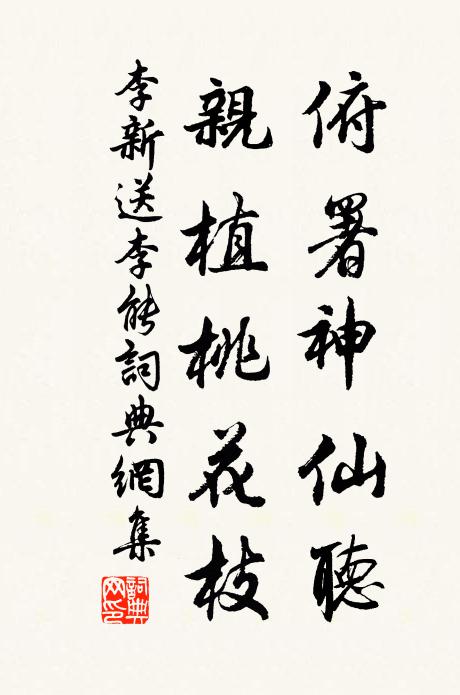 俯署神仙聽
親植桃花枝
李新送李能詞典網集
詞典網印